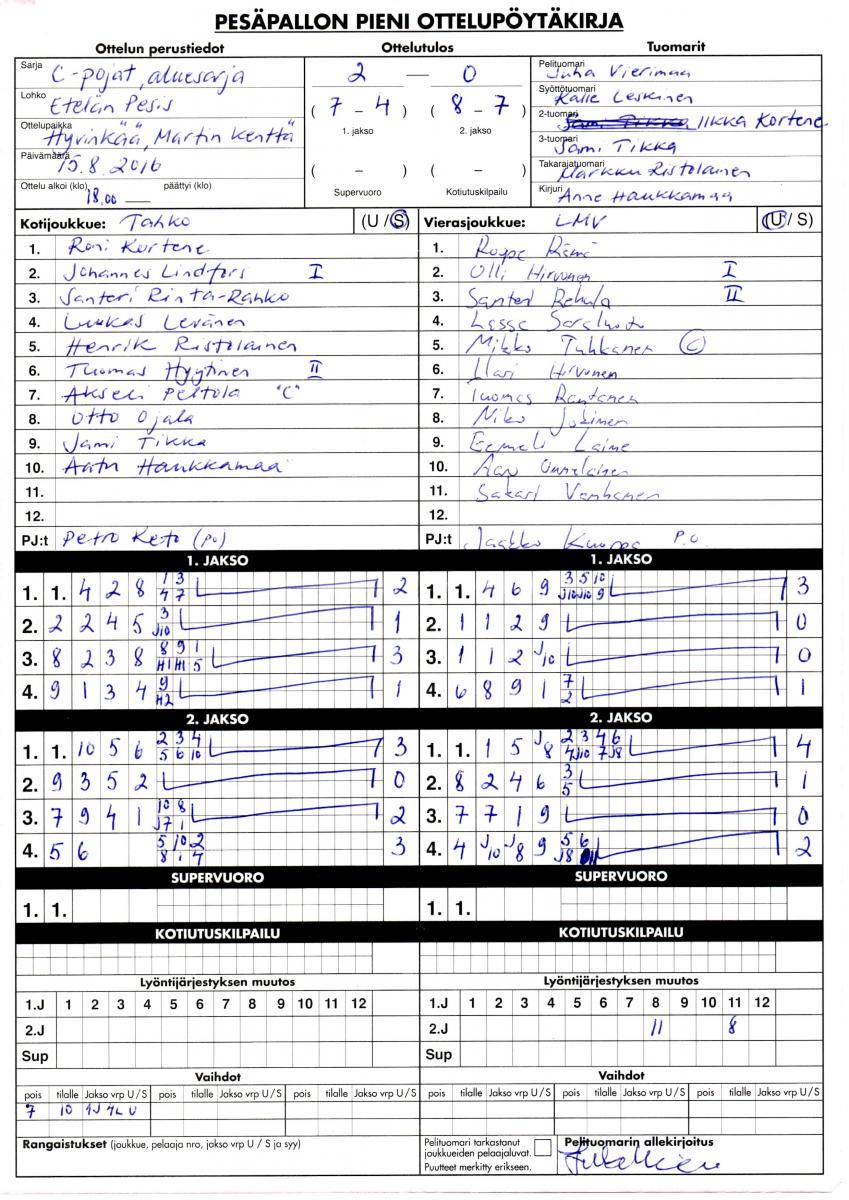 PESÄPALLON PIENI OTTELUPÖYTÄKIRJA
Ottelun perustiedot
Sarja C-pojat, aluesarja
Lohko Etelän Pesis
Ottelupaikka Hyvinkää, Martin kenttä
Päivämäärä 15.8.2016
Ottelu alkoi (klo) 18.00 päättyi (klo)
Ottelutulos
2 — 0
( 7 - 4 ) ( 8 - 7 )
1. jakso 2. jakso
( - ) ( - )
Supervuoro Kotiutuskilpailu
Tuomarit
Pelituomari Juha Vierimaa
Syöttötuomari Kalle Leskinen
2-tuomari Jami Tikka Ilkka Kortene
3-tuomari Jami Tikka
Takarajatuomari Markku Ristolainen
Kirjuri Anne Haukkamaa
Kotijoukkue: Tahko (U / S)
1. Roni Kortene
2. Johannes Lindfors I
3. Santeri Rinta-Rahko
4. Luukas Levänen
5. Henrik Ristolainen
6. Tuomas Hyytinen II
7. Akseli Peltola "C"
8. Otto Ojala
9. Jami Tikka
10. Aatu Haukkamaa
11.
12.
PJ:t Petro Keto (po)
Vierasjoukkue: LMV (U / S)
1. Roope Rämö
2. Olli Hirvonen I
3. Santeri Rekula II
4. Lasse
5. Mikko Tuhkanen (C)
6. Ilari Hirvonen
7. Tuomas Rautanen
8. Niko Jokinen
9. Eemeli Laine
10.
11. Sakari Vanhanen
12.
PJ:t Jaakko Kuoppa P.O.
1. JAKSO
1. 1. 4 2 8 1 3 2
4 7
2. 2 2 4 5 3 1
J10
3. 8 2 3 8 8 9 1 3
H1 H1 5
4. 9 1 3 4 9 1
H2
1. JAKSO
1. 1. 4 6 9 3 5 10 3
J10 J10 9
2. 1 1 2 9 0
3. 1 1 2 J10 0
4. 6 8 9 1 7 1
2
2. JAKSO
1. 1. 10 5 6 2 3 4 3
5 6 10
2. 9 3 5 2 0
3. 7 9 4 1 10 8 2
J7 1
4. 5 6 5 10 2 3
8 1 4
2. JAKSO
1. 1. 1 5 J8 2 3 4 6 4
4 J10 7 J8
2. 8 2 4 6 3 1
5
3. 7 7 1 9 0
4. 4 J10 J8 9 5 6 2
J8
SUPERVUORO
1. 1.
SUPERVUORO
1. 1.
KOTIUTUSKILPAILU
KOTIUTUSKILPAILU
Lyöntijärjestyksen muutos
1.J 1 2 3 4 5 6 7 8 9 10 11 12
2.J
Sup
Lyöntijärjestyksen muutos
1.J 1 2 3 4 5 6 7 8 9 10 11 12
2.J 11 8
Sup
Vaihdot
pois tilalle Jakso vrp U / S pois tilalle Jakso vrp U / S pois tilalle Jakso vrp U / S
7 10 1J 4L U
Vaihdot
pois tilalle Jakso vrp U / S pois tilalle Jakso vrp U / S pois tilalle Jakso vrp U / S
Rangaistukset (joukkue, pelaaja nro, jakso vrp U / S ja syy)
Pelituomari tarkastanut
joukkueiden pelaajaluvat.
Puutteet merkitty erikseen.
Pelituomarin allekirjoitus